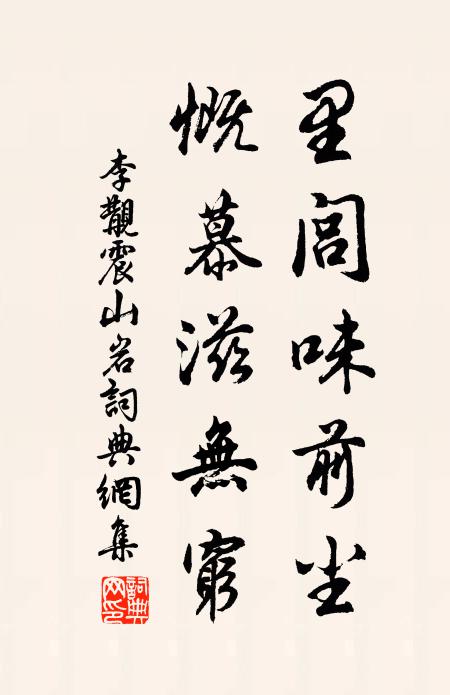 里閭味前尘
慨慕滋無窮
李覯震山岩詞典網集
詞典网印